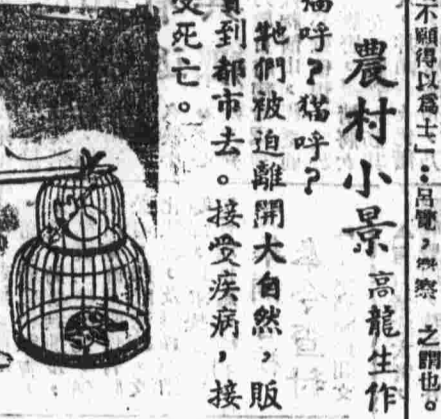 不願得以爲士」：呂覽，察 之謂也。
農村小景 高龍生作
猫呼？猫呼？
牠們被迫離開大自然，販
賣到都市去。接受疾病，接
受死亡。